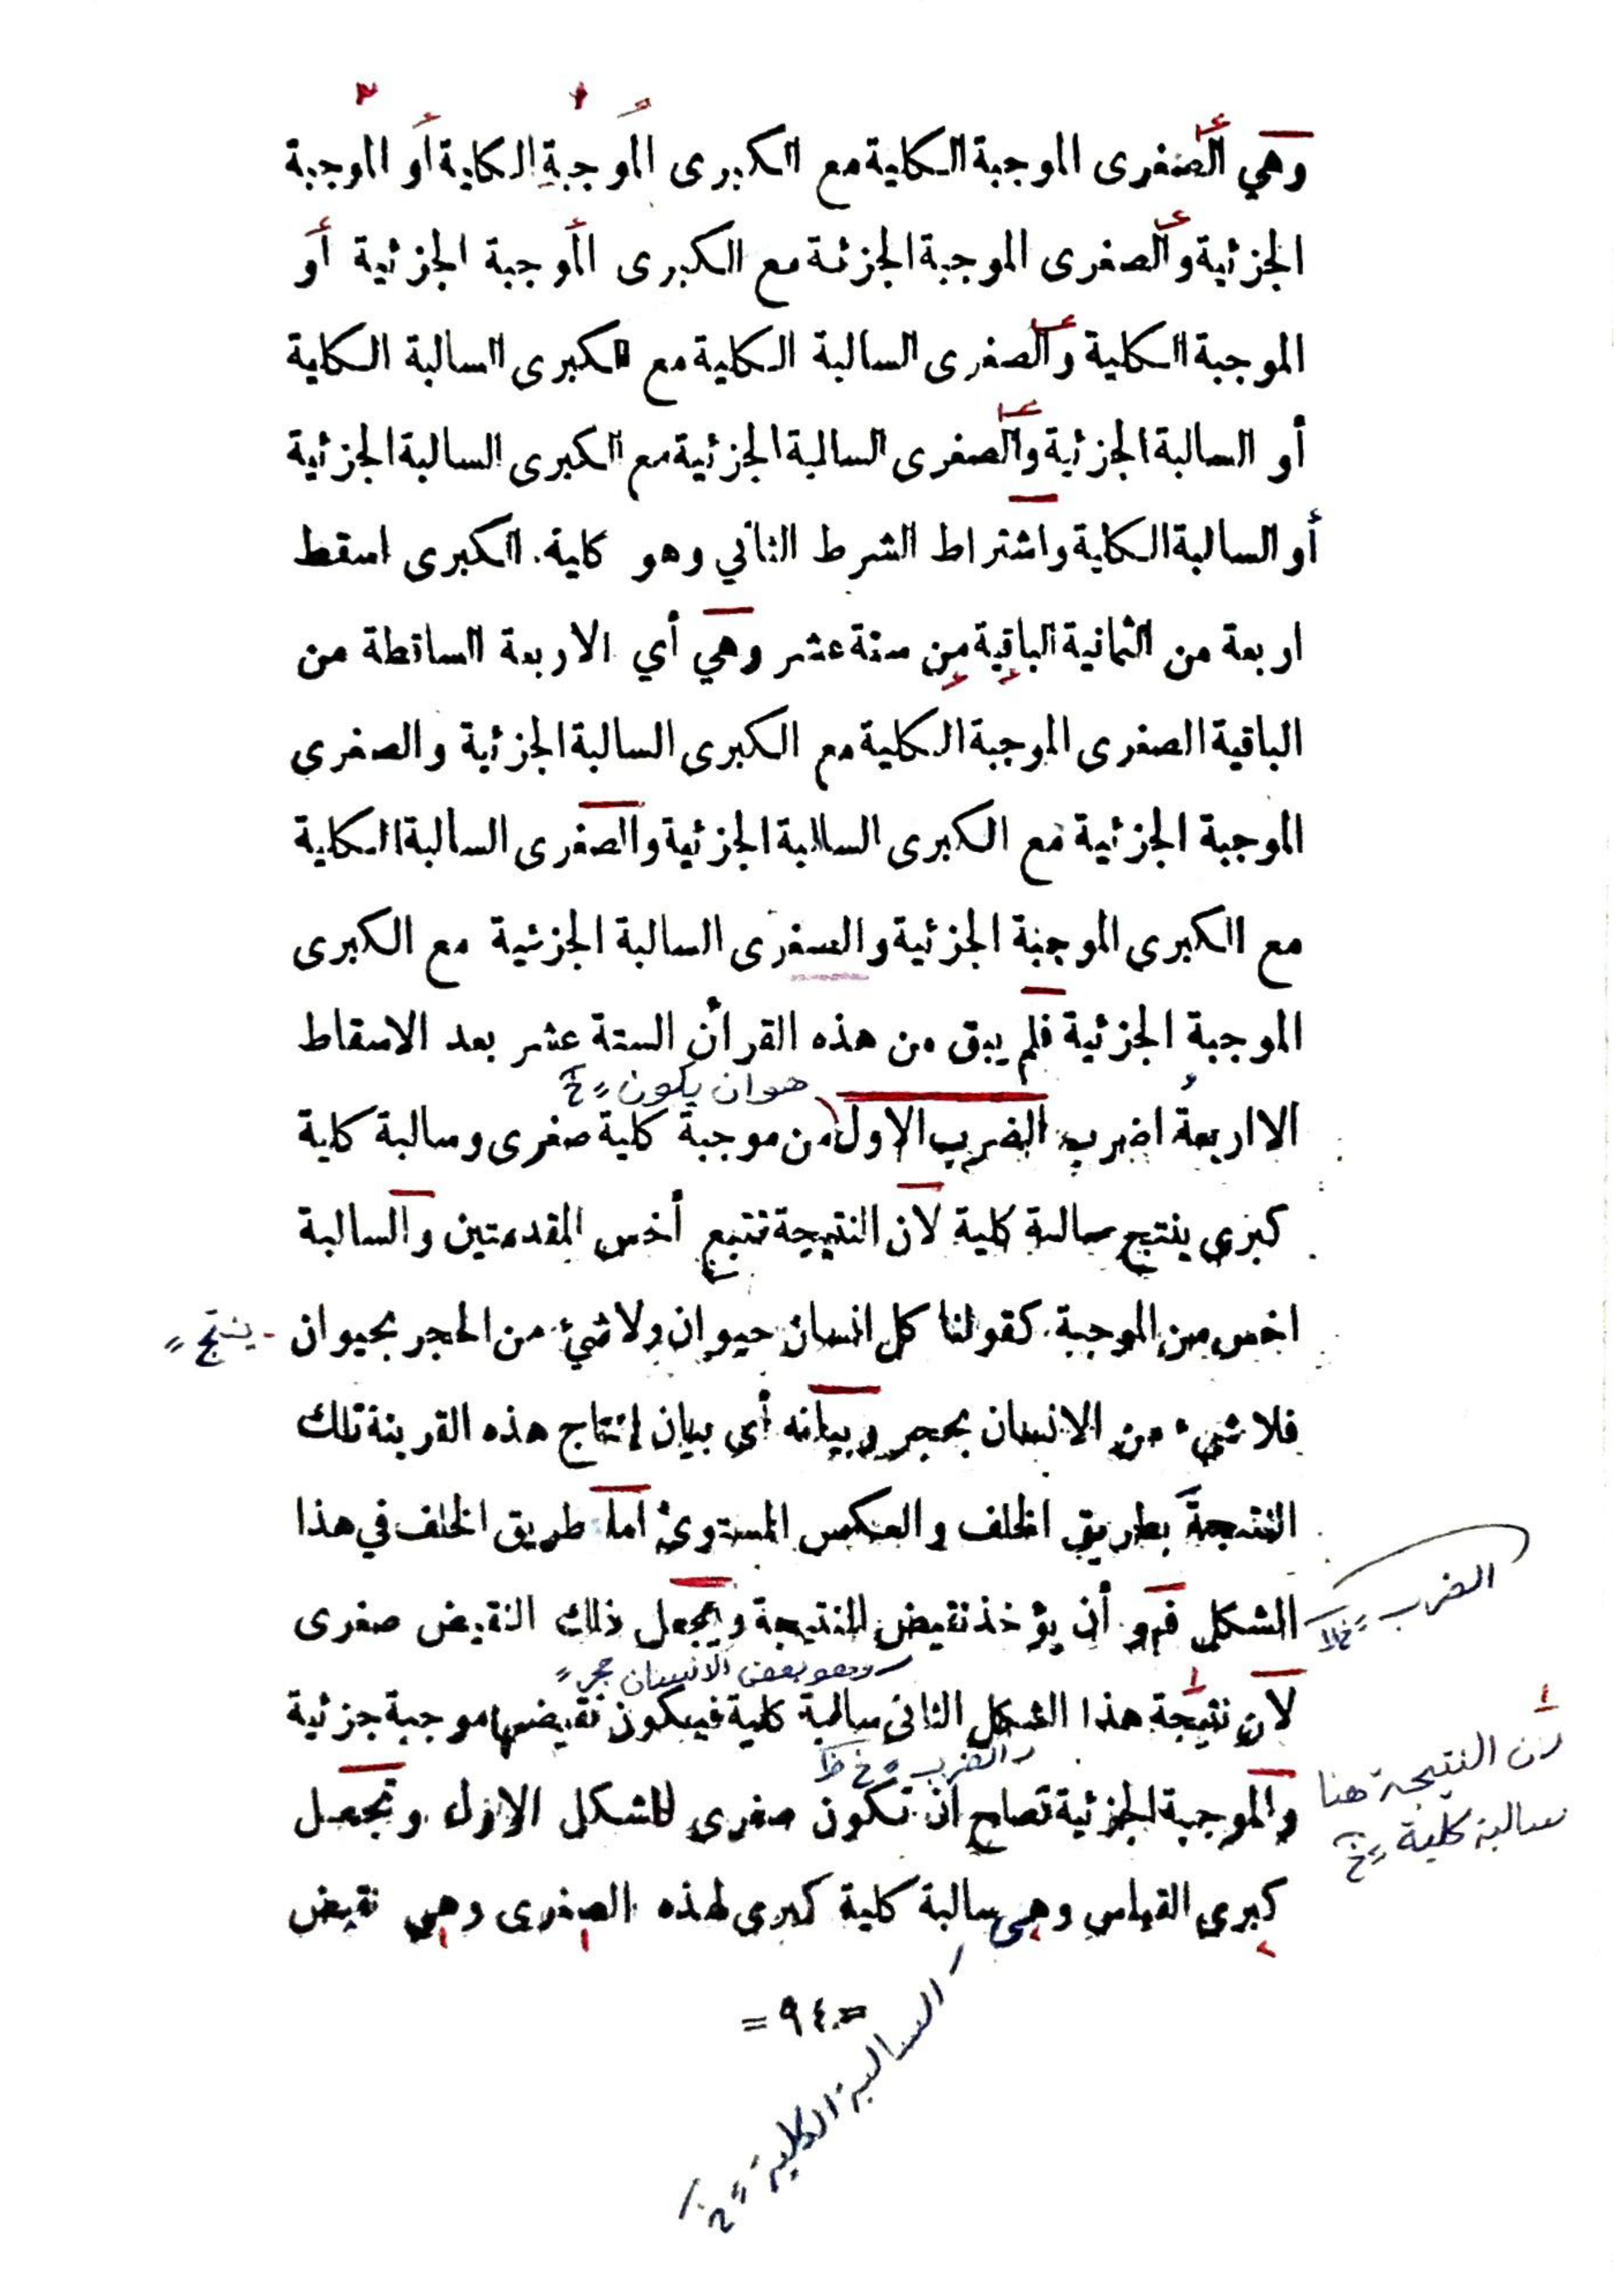 وهي الصغرى الموجبة الكلية مع الكبرى الموجبة الكلية أو الموجبة
الجزئية والصغرى الموجبة الجزئة مع الكبرى الموجبة الجزئية أو
الموجبة الكلية والصغرى السالبة الكلية مع الكبرى السالبة الكلية
أو السالبة الجزئية والصغرى السالبة الجزئية مع الكبرى السالبة الجزئية
أو السالبة الكلية واشتراط الشرط الثاني وهو كلية. الكبرى اسقط
اربعة من الثمانية الباقية من ستة عشر وهي أي الاربعة الساقطة من
الباقية الصغرى الموجبة الكلية مع الكبرى السالبة الجزئية والصغرى
الموجبة الجزئية مع الكبرى السالبة الجزئية والصغرى السالبة الكلية
مع الكبرى الموجبة الجزئية والسفرى السالبة الجزئية مع الكبرى
الموجبة الجزئية فلم يبق من هذه القرائن الستة عشر بعد الاسقاط
هو ان يكون
الا اربعة اضرب الضرب الاول من موجبة كلية صغرى وسالبة كلية
كبرى ينتج سالبة كلية لان النتيجة تتبع أخس المقدمتين والسالبة
اخس من الموجبة كقولنا كل انسان حيوان ولا شيئ من الحجر بحيوان
ينتج
فلا شيء من الانسان بحجر وبيانه أي بيان إنتاج هذه القرينة تلك
النتيجة بطريق الخلف والعكس المستوى اما طريق الخلف في هذا
الضرب
الشكل فهو أن يؤخذ نقيض النتيجة ويجعل ذلك النقيض صغرى
وهو بعض الانسان حجر
لان نتيجة هذا الشكل الثانى سالبة كلية فيكون نقيضها موجبة جزئية
والضرب
لان النتيجة هنا
سالبة كلية
والموجبة الجزئية تصلح أن تكون صغرى للشكل الاول وتجعل
كبرى القياس وهي سالبة كلية كبرى لهذه الصغرى وهي نقيض
السالبة الكلية
= ٩٤ =